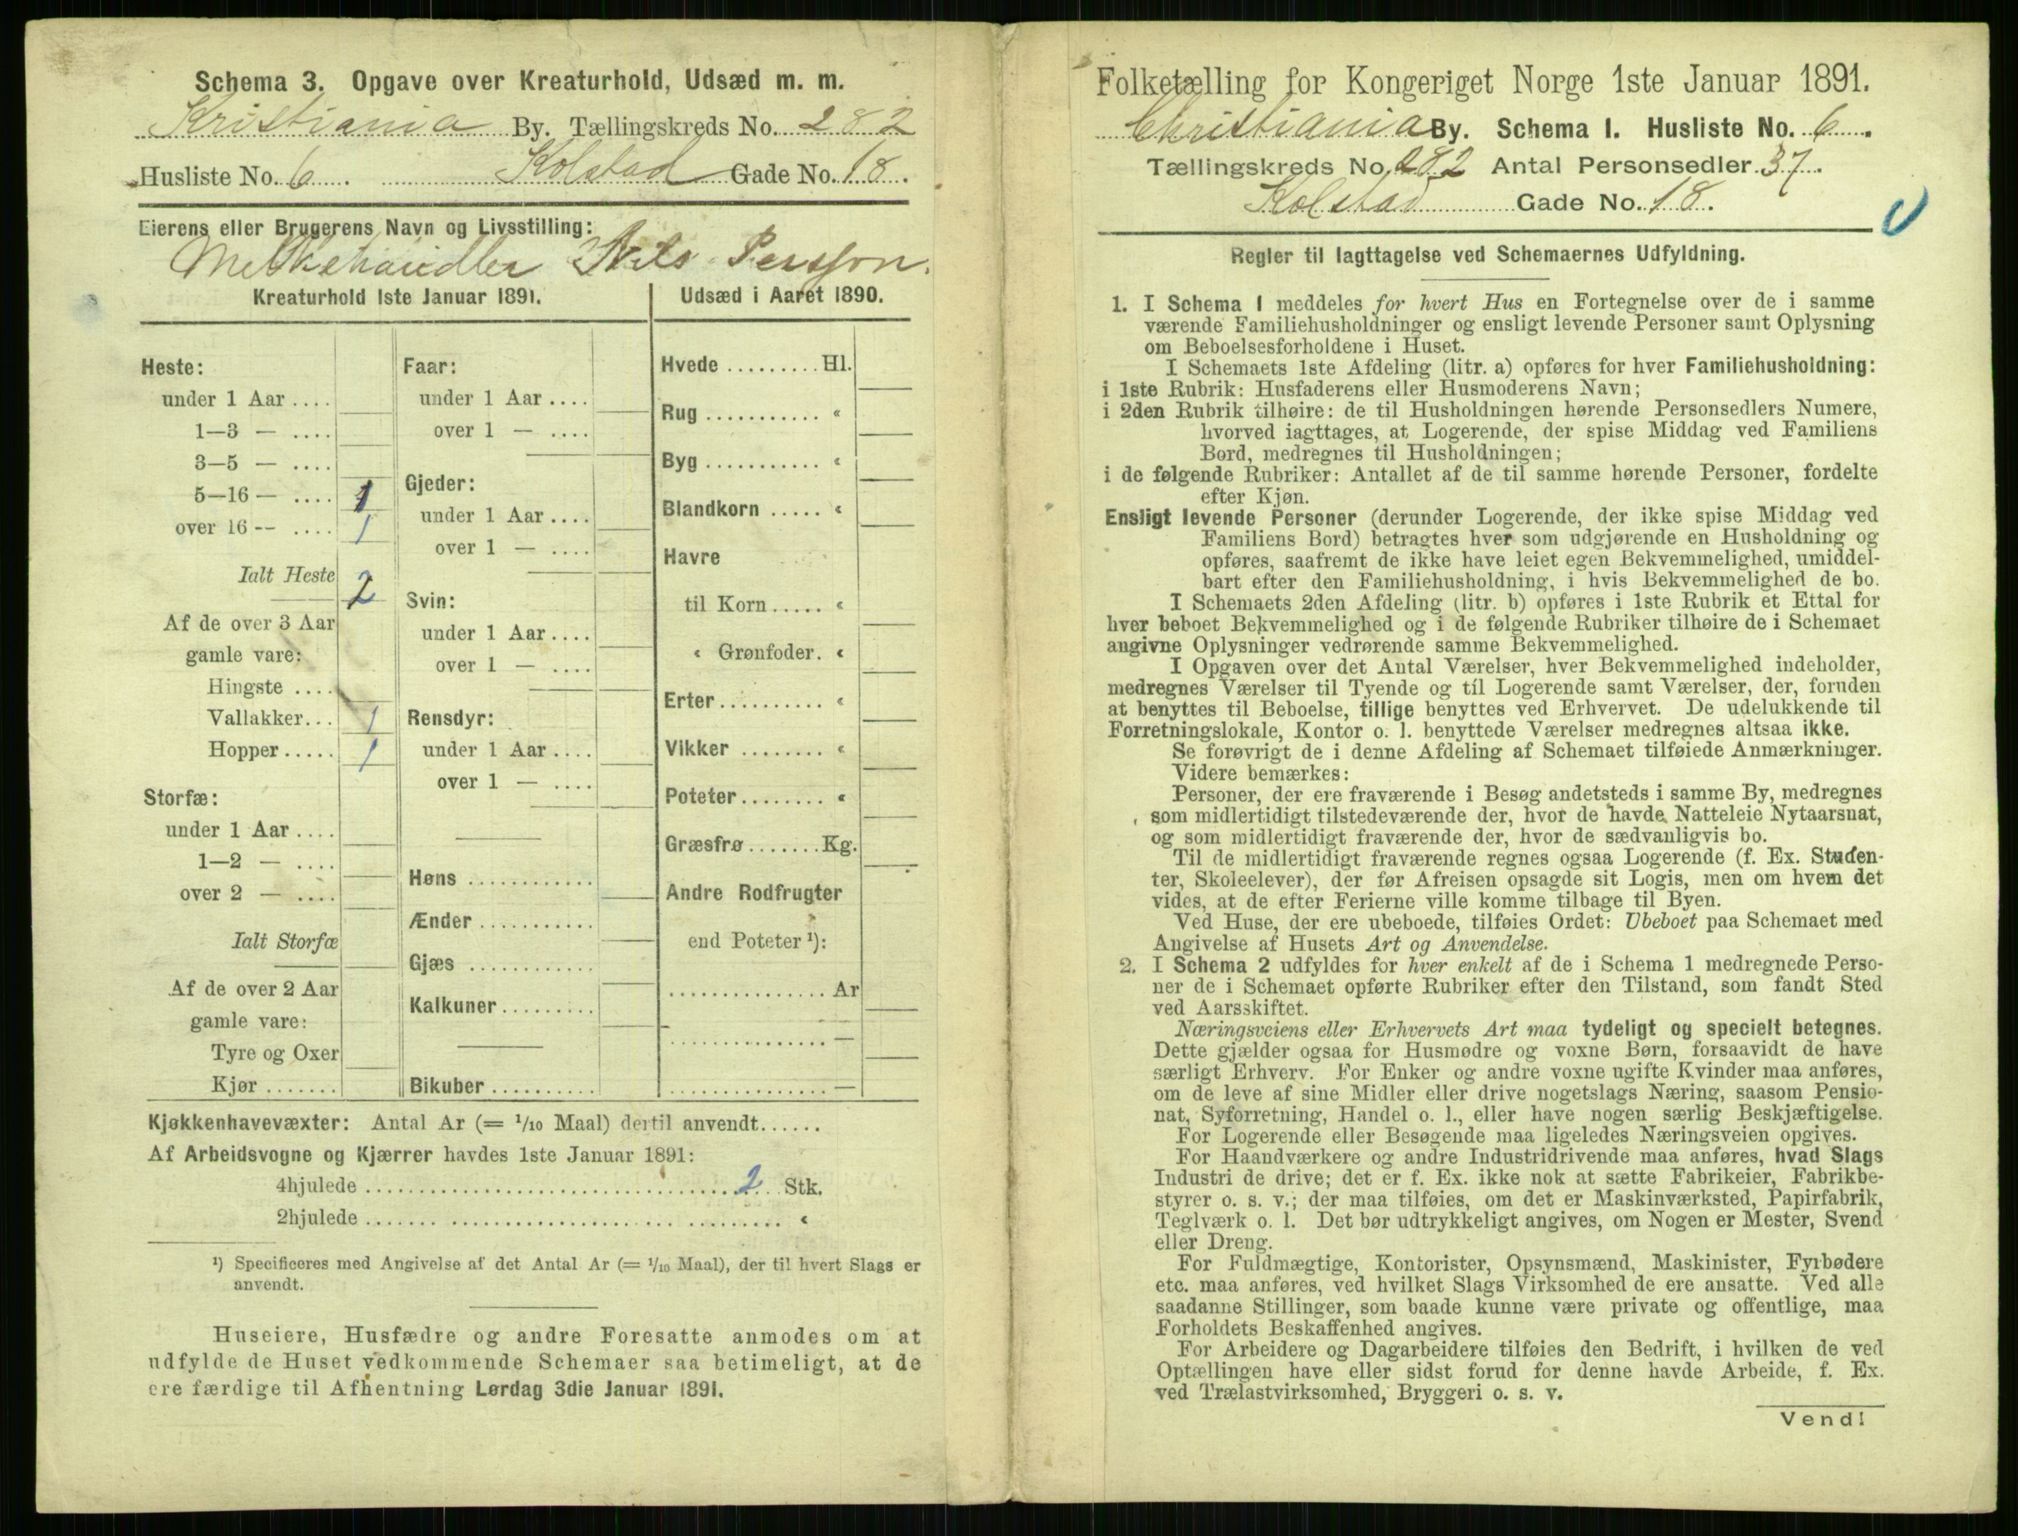 Schema 3. Opgave over Kreaturhold, Udsæd m. m.
Kristiania By. Tællingskreds No. 282
Husliste No. 6. Kolstad Gade No. 18.
Eierens eller Brugerens Navn og Livsstilling:
Melkehandler Nils Persson.
Kreaturhold 1ste Januar 1891.
Heste:
under 1 Aar ....
1—3 — ....
3—5 — ....
5—16 — .... 1
over 16 -- .... 1
Ialt Heste 2
Af de over 3 Aar
gamle vare:
Hingste ....
Vallakker... 1
Hopper ..... 1
Storfæ:
under 1 Aar ....
1—2 — ....
over 2 — ....
Ialt Storfæ
Af de over 2 Aar
gamle vare:
Tyre og Oxer
Kjør .......
Faar:
under 1 Aar ....
over 1 — ....
Gjeder:
under 1 Aar ....
over 1 — ....
Svin:
under 1 Aar ....
over 1 — ....
Rensdyr:
under 1 Aar ....
over 1 — ....
Høns ............
Ænder ...........
Gjæs ............
Kalkuner .........
Bikuber ..........
Udsæd i Aaret 1890.
Hvede ......... Hl.
Rug ........... «
Byg ........... «
Blandkorn ..... «
Havre
til Korn ..... «
« Grønfoder. «
Erter.......... «
Vikker ........ «
Poteter........ «
Græsfrø ....... Kg.
Andre Rodfrugter
end Poteter ¹):
............... Ar
............... —
............... —
Kjøkkenhavevæxter: Antal Ar (= 1/10 Maal) dertil anvendt......
Af Arbeidsvogne og Kjærrer havdes 1ste Januar 1891:
4hjulede .................................. 2 Stk.
2hjulede .................................. «
¹) Specificeres med Angivelse af det Antal Ar (= 1/10 Maal), der til hvert Slags er
anvendt.
Huseiere, Husfædre og andre Foresatte anmodes om at
udfylde de Huset vedkommende Schemaer saa betimeligt, at de
ere færdige til Afhentning Lørdag 3die Januar 1891.
Folketælling for Kongeriget Norge 1ste Januar 1891.
Christiania By. Schema I. Husliste No. 6.
Tællingskreds No. 282 Antal Personsedler 37.
Kolstad Gade No. 18.
Regler til Iagttagelse ved Schemaernes Udfyldning.
1. I Schema 1 meddeles for hvert Hus en Fortegnelse over de i samme
værende Familiehusholdninger og ensligt levende Personer samt Oplysning
om Beboelsesforholdene i Huset.
I Schemaets 1ste Afdeling (litr. a) opføres for hver Familiehusholdning:
i 1ste Rubrik: Husfaderens eller Husmoderens Navn;
i 2den Rubrik tilhøire: de til Husholdningen hørende Personsedlers Numere,
hvorved iagttages, at Logerende, der spise Middag ved Familiens
Bord, medregnes til Husholdningen;
i de følgende Rubriker: Antallet af de til samme hørende Personer, fordelte
efter Kjøn.
Ensligt levende Personer (derunder Logerende, der ikke spise Middag ved
Familiens Bord) betragtes hver som udgjørende en Husholdning og
opføres, saafremt de ikke have leiet egen Bekvemmelighed, umiddel-
bart efter den Familiehusholdning, i hvis Bekvemmelighed de bo.
I Schemaets 2den Afdeling (litr. b) opføres i 1ste Rubrik et Ettal for
hver beboet Bekvemmelighed og i de følgende Rubriker tilhøire de i Schemaet
angivne Oplysninger vedrørende samme Bekvemmelighed.
I Opgaven over det Antal Værelser, hver Bekvemmelighed indeholder,
medregnes Værelser til Tyende og til Logerende samt Værelser, der, foruden
at benyttes til Beboelse, tillige benyttes ved Erhvervet. De udelukkende til
Forretningslokale, Kontor o. l. benyttede Værelser medregnes altsaa ikke.
Se forøvrigt de i denne Afdeling af Schemaet tilføiede Anmærkninger.
Videre bemærkes:
Personer, der ere fraværende i Besøg andetsteds i samme By, medregnes
som midlertidigt tilstedeværende der, hvor de havde Natteleie Nytaarsnat,
og som midlertidigt fraværende der, hvor de sædvanligvis bo.
Til de midlertidigt fraværende regnes ogsaa Logerende (f. Ex. Studen-
ter, Skoleelever), der før Afreisen opsagde sit Logis, men om hvem det
vides, at de efter Ferierne ville komme tilbage til Byen.
Ved Huse, der ere ubeboede, tilføies Ordet: Ubeboet paa Schemaet med
Angivelse af Husets Art og Anvendelse.
2. I Schema 2 udfyldes for hver enkelt af de i Schema 1 medregnede Perso-
ner de i Schemaet opførte Rubriker efter den Tilstand, som fandt Sted
ved Aarsskiftet.
Næringsveiens eller Erhvervets Art maa tydeligt og specielt betegnes.
Dette gjælder ogsaa for Husmødre og voxne Børn, forsaavidt de have
særligt Erhverv. For Enker og andre voxne ugifte Kvinder maa anføres,
om de leve af sine Midler eller drive nogetslags Næring, saasom Pensio-
nat, Syforretning, Handel o. l., eller have nogen særlig Beskjæftigelse.
For Logerende eller Besøgende maa ligeledes Næringsveien opgives.
For Haandværkere og andre Industridrivende maa anføres, hvad Slags
Industri de drive; det er f. Ex. ikke nok at sætte Fabrikeier, Fabrikbe-
styrer o. s. v.; der maa tilføies, om det er Maskinværksted, Papirfabrik,
Teglværk o. l. Det bør udtrykkeligt angives, om Nogen er Mester, Svend
eller Dreng.
For Fuldmægtige, Kontorister, Opsynsmænd, Maskinister, Fyrbødere
etc. maa anføres, ved hvilket Slags Virksomhed de ere ansatte. Ved alle
saadanne Stillinger, som baade kunne være private og offentlige, maa
Forholdets Beskaffenhed angives.
For Arbeidere og Dagarbeidere tilføies den Bedrift, i hvilken de ved
Optællingen have eller sidst forud for denne havde Arbeide, f. Ex.
ved Trælastvirksomhed, Bryggeri o. s. v.
Vend!